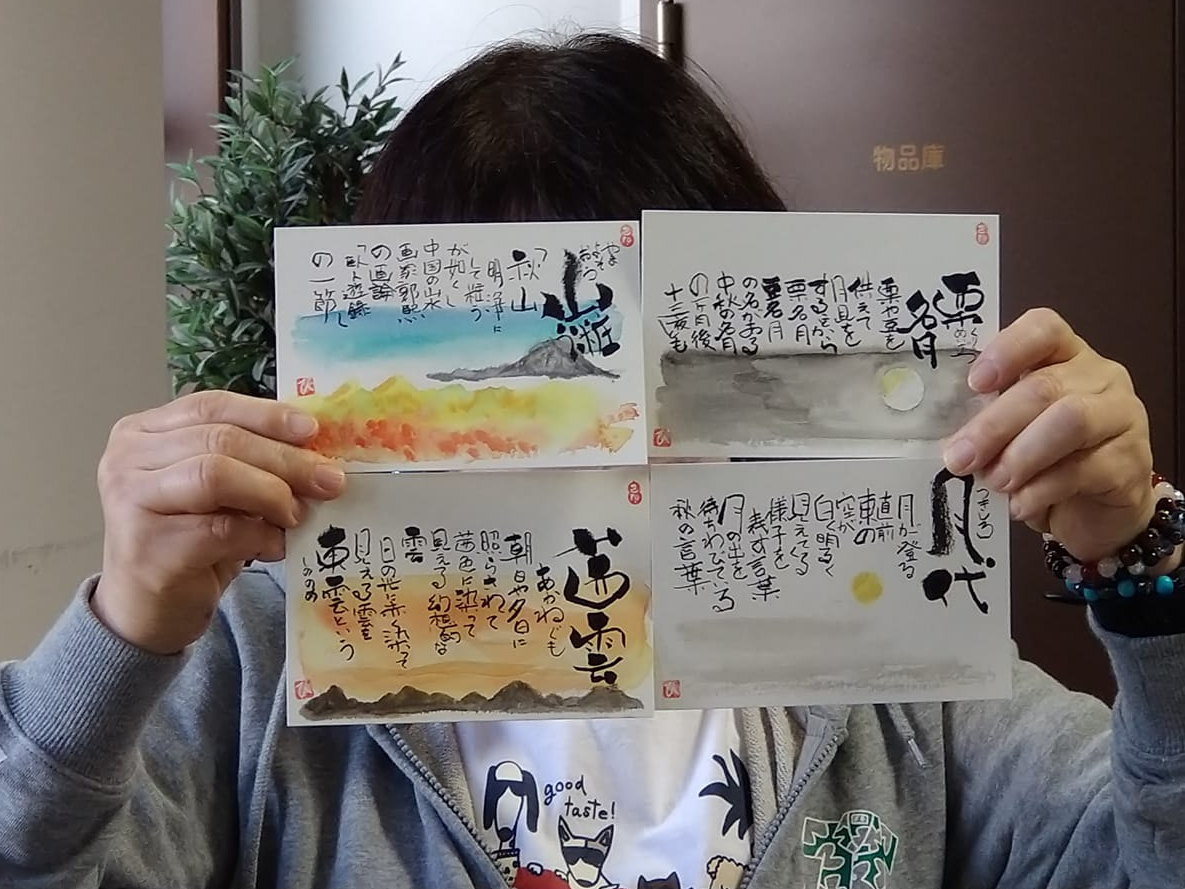 物品庫
山粧う
やまよそおう
「秋山
明浄に
して粧う
が如く」
中国の山水
画家郭熙
の画論
の一節
栗名月
栗や豆を
供えて
月見を
することから
栗名月
豆名月
の名がある
中秋の名月
の一ヶ月後
十三夜も
茜雲
あかねぐも
朝日や夕日に
照らされて
茜色に染って
見える幻想的な
雲
日の光に赤く染って
見える雲を
東雲という
しののめ
月代
つきしろ
月が登る
直前
東の
空が
白く明るく
見えてくる
様子を
表す言葉
月の出を
待ちわびている
秋の言葉
good
taste!